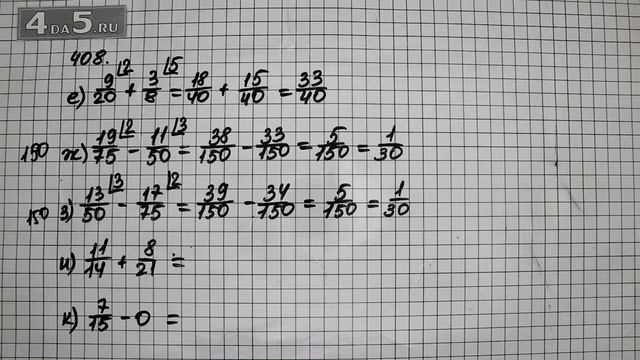 4DA5.RU
408.
е) 9/20 ⌊2 + 3/8 ⌊5 = 18/40 + 15/40 = 33/40
150 ж) 19/75 ⌊2 − 11/50 ⌊3 = 38/150 − 33/150 = 5/150 = 1/30
150 з) 13/50 ⌊3 − 17/75 ⌊2 = 39/150 − 34/150 = 5/150 = 1/30
и) 11/14 + 8/21 =
к) 7/15 − 0 =